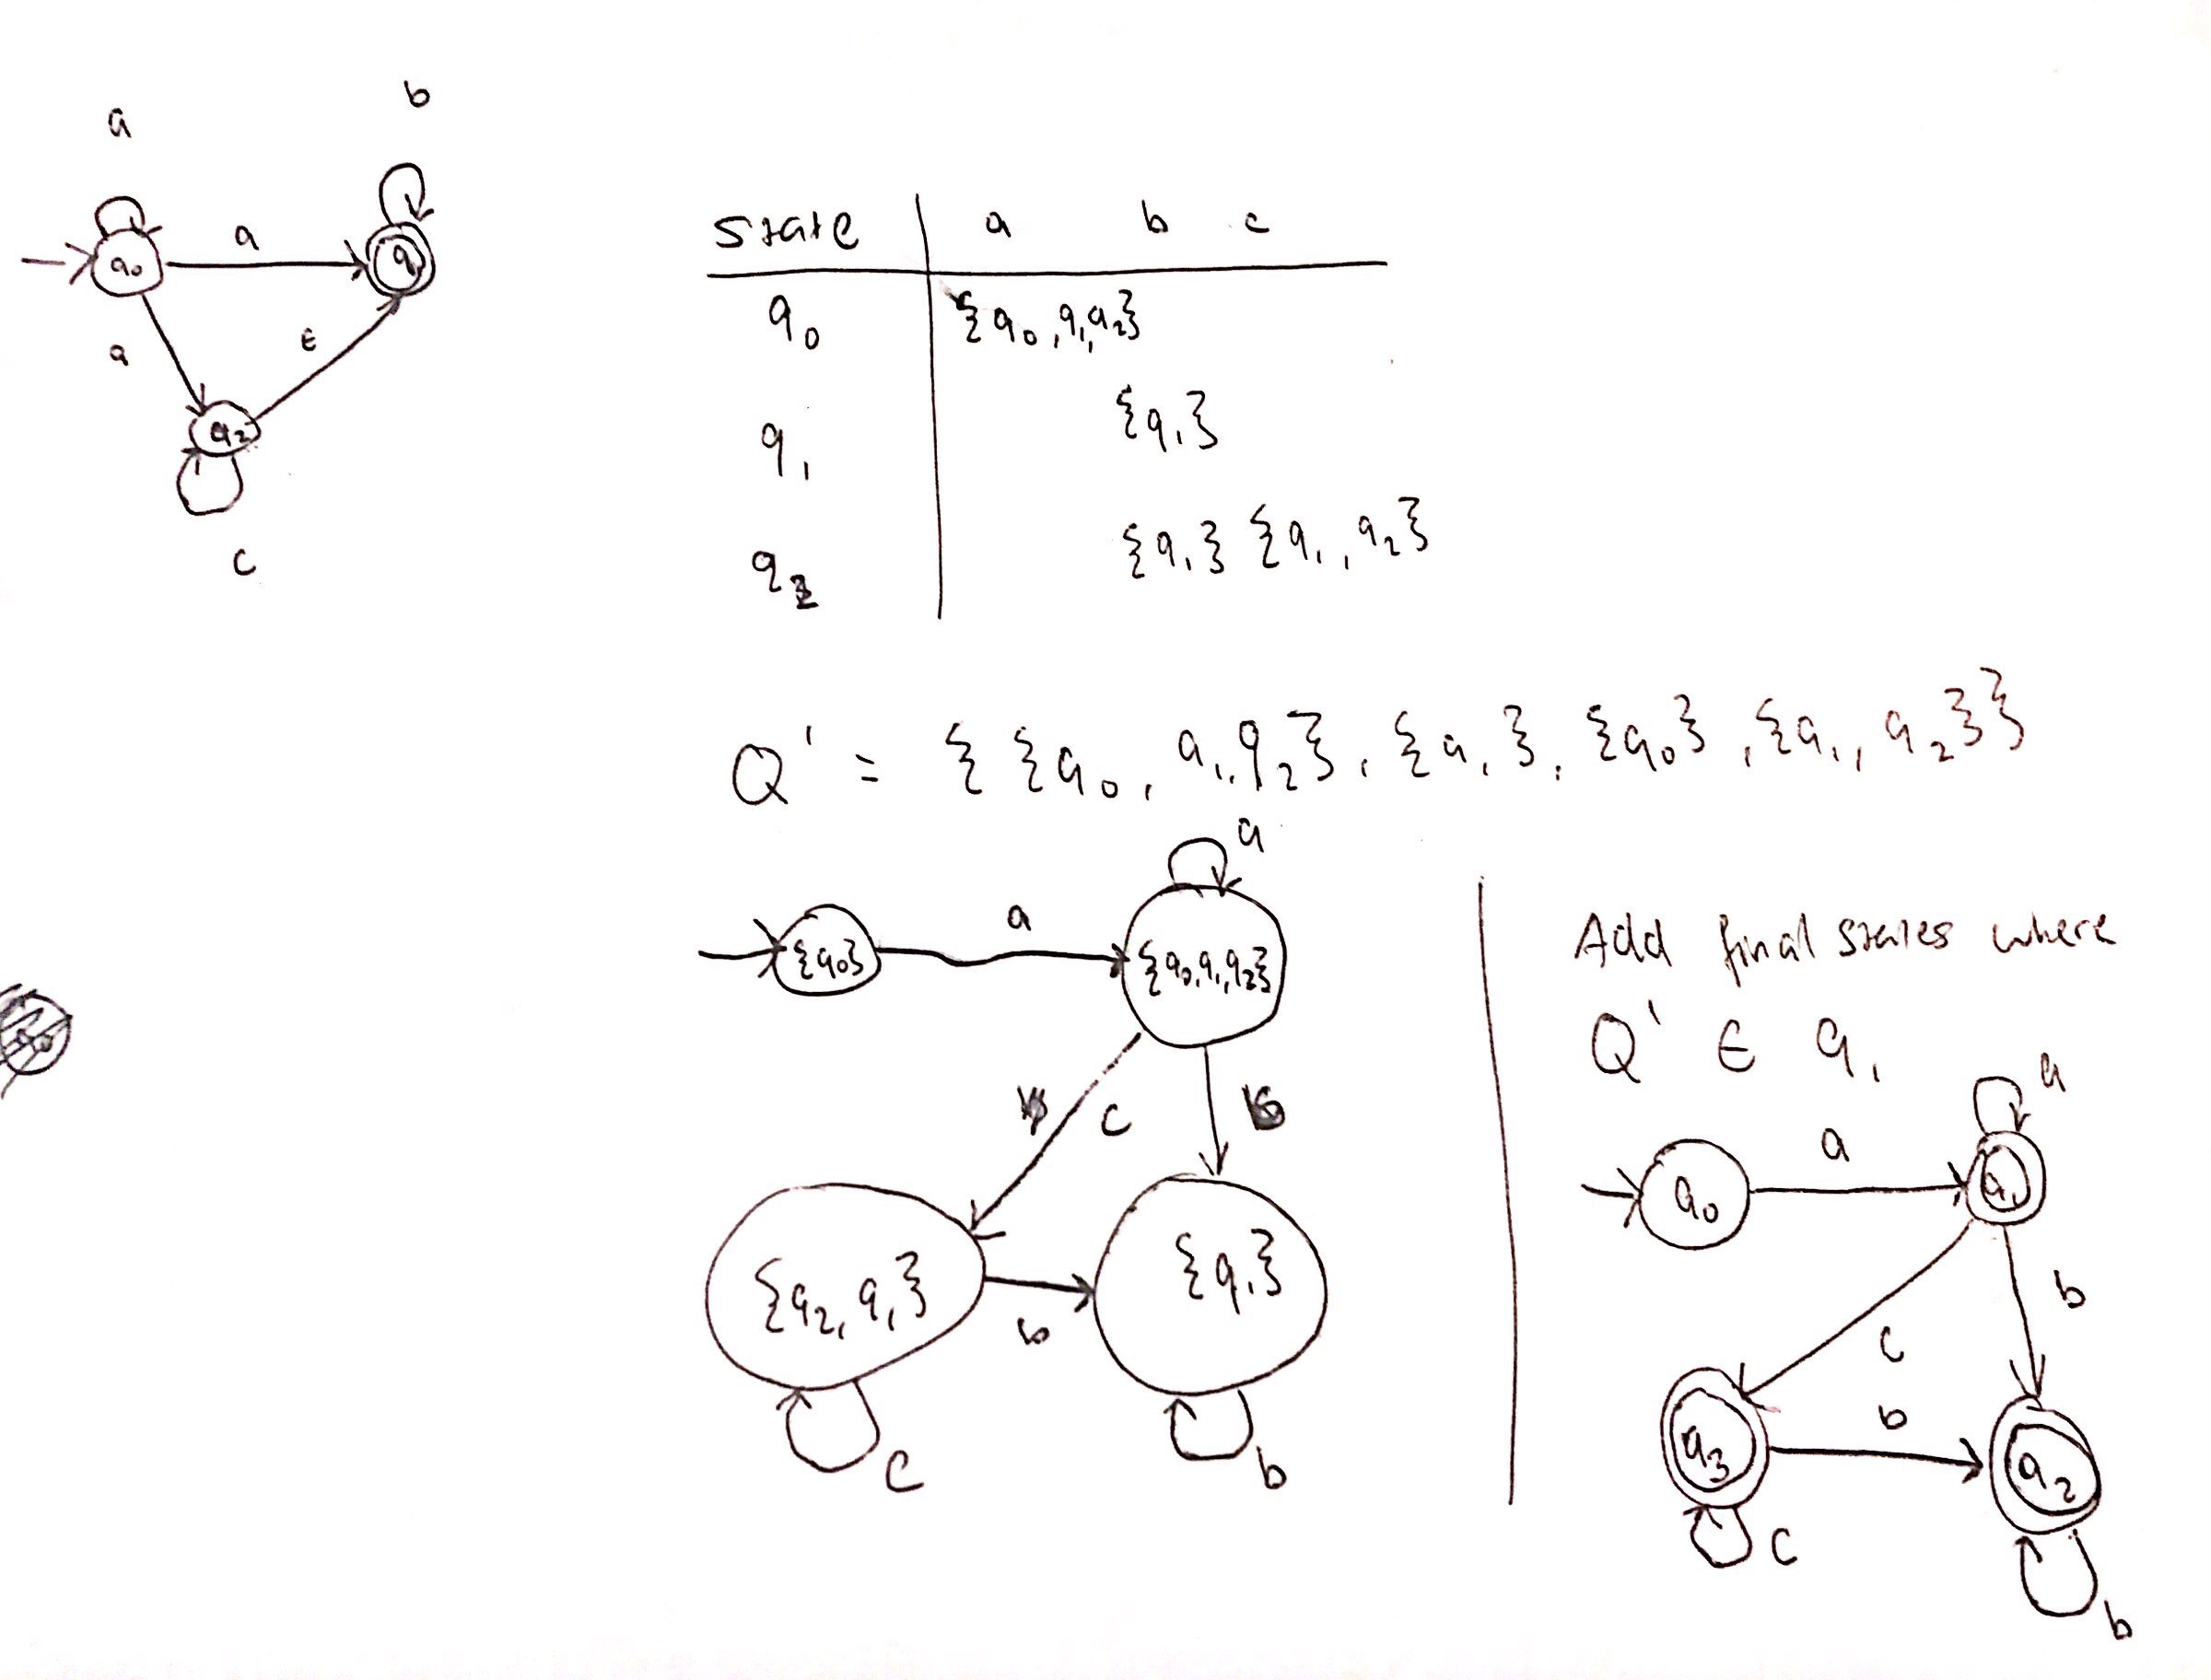 a
b
a
q₀
q
a
ε
q₂
c
state a b c
q₀ {q₀, q₁, q₂}
q₁ {q₁}
q₂ {q₁} {q₁, q₂}
Q' = { {q₀, q₁, q₂}, {q₁}, {q₀}, {q₁, q₂} }
a
a
{q₀}
{q₀, q₁, q₂}
c
b
{q₂, q₁}
{q₁}
b
c
b
Add final states where
Q' ∈ q₁
a
a
q₀
q₁
b
c
b
q₃
q₂
c
b